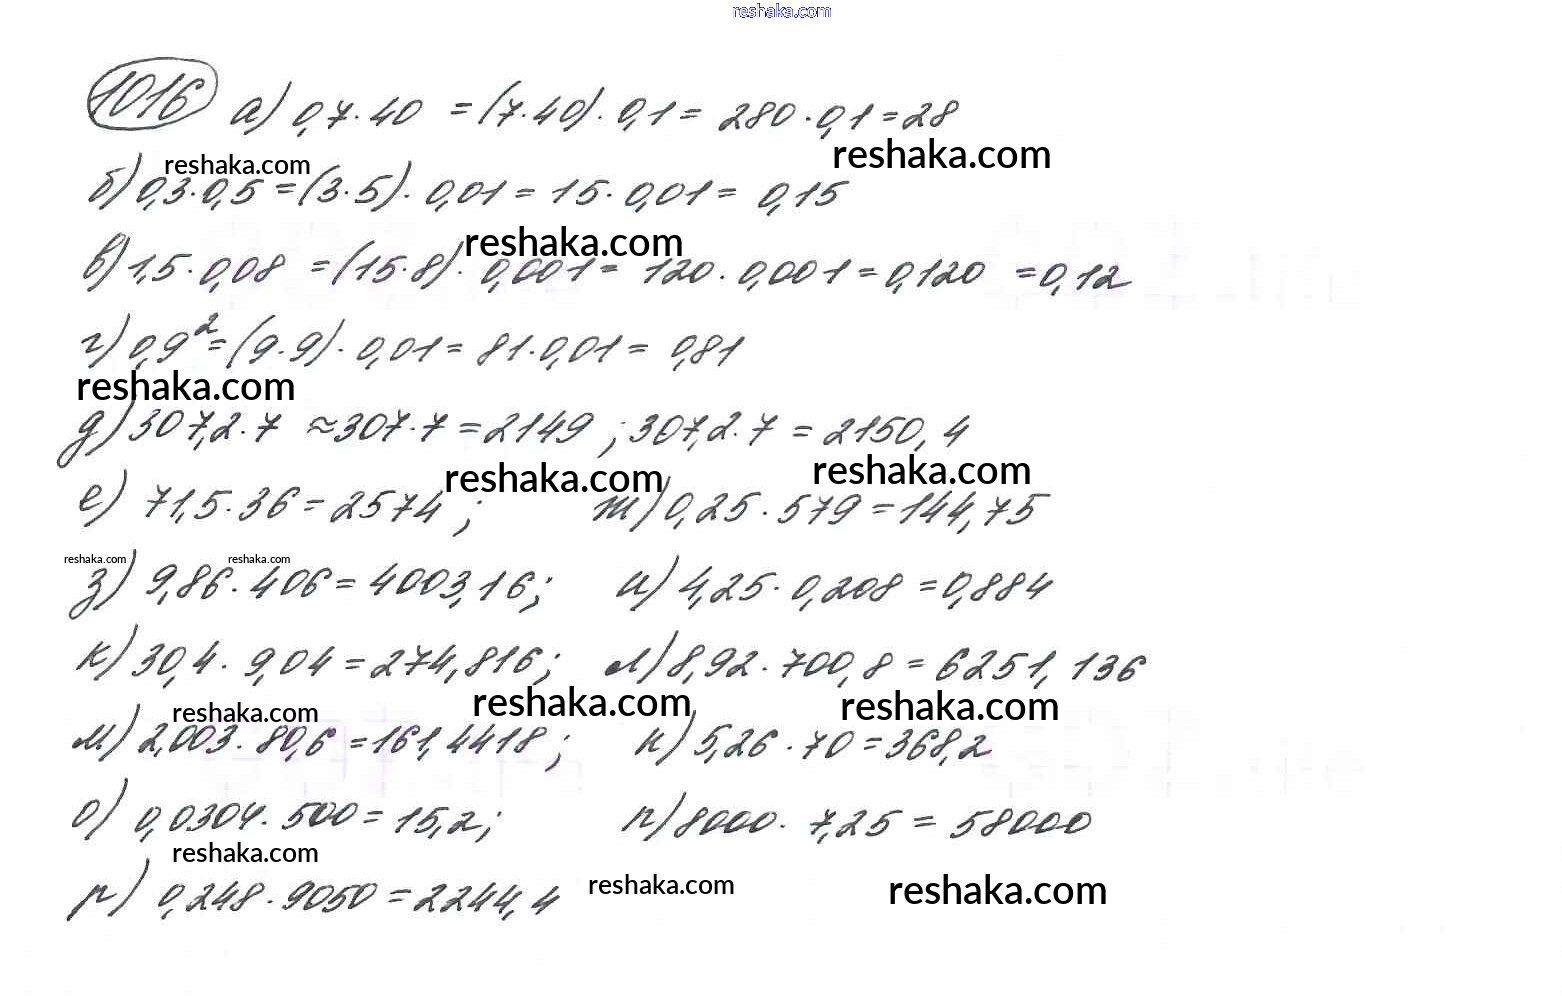 reshaka.com
1016 а) 0,7·40 = (7·40)·0,1 = 280·0,1 = 28
reshaka.com reshaka.com
б) 0,3·0,5 = (3·5)·0,01 = 15·0,01 = 0,15
reshaka.com
в) 1,5·0,08 = (15·8)·0,001 = 120·0,001 = 0,120 = 0,12
г) 0,9² = (9·9)·0,01 = 81·0,01 = 0,81
reshaka.com
д) 307,2·7 ≈ 307·7 = 2149 ; 307,2·7 = 2150,4
reshaka.com reshaka.com
е) 71,5·36 = 2574 ; ж) 0,25·579 = 144,75
reshaka.com reshaka.com
з) 9,86·406 = 4003,16; и) 4,25·0,208 = 0,884
к) 30,4·9,04 = 274,816; л) 8,92·700,8 = 6251,136
reshaka.com reshaka.com reshaka.com
м) 2,003·80,6 = 161,4418; н) 5,26·70 = 368,2
о) 0,0304·500 = 15,2; п) 8000·7,25 = 58000
reshaka.com
р) 0,248·9050 = 2244,4
reshaka.com reshaka.com